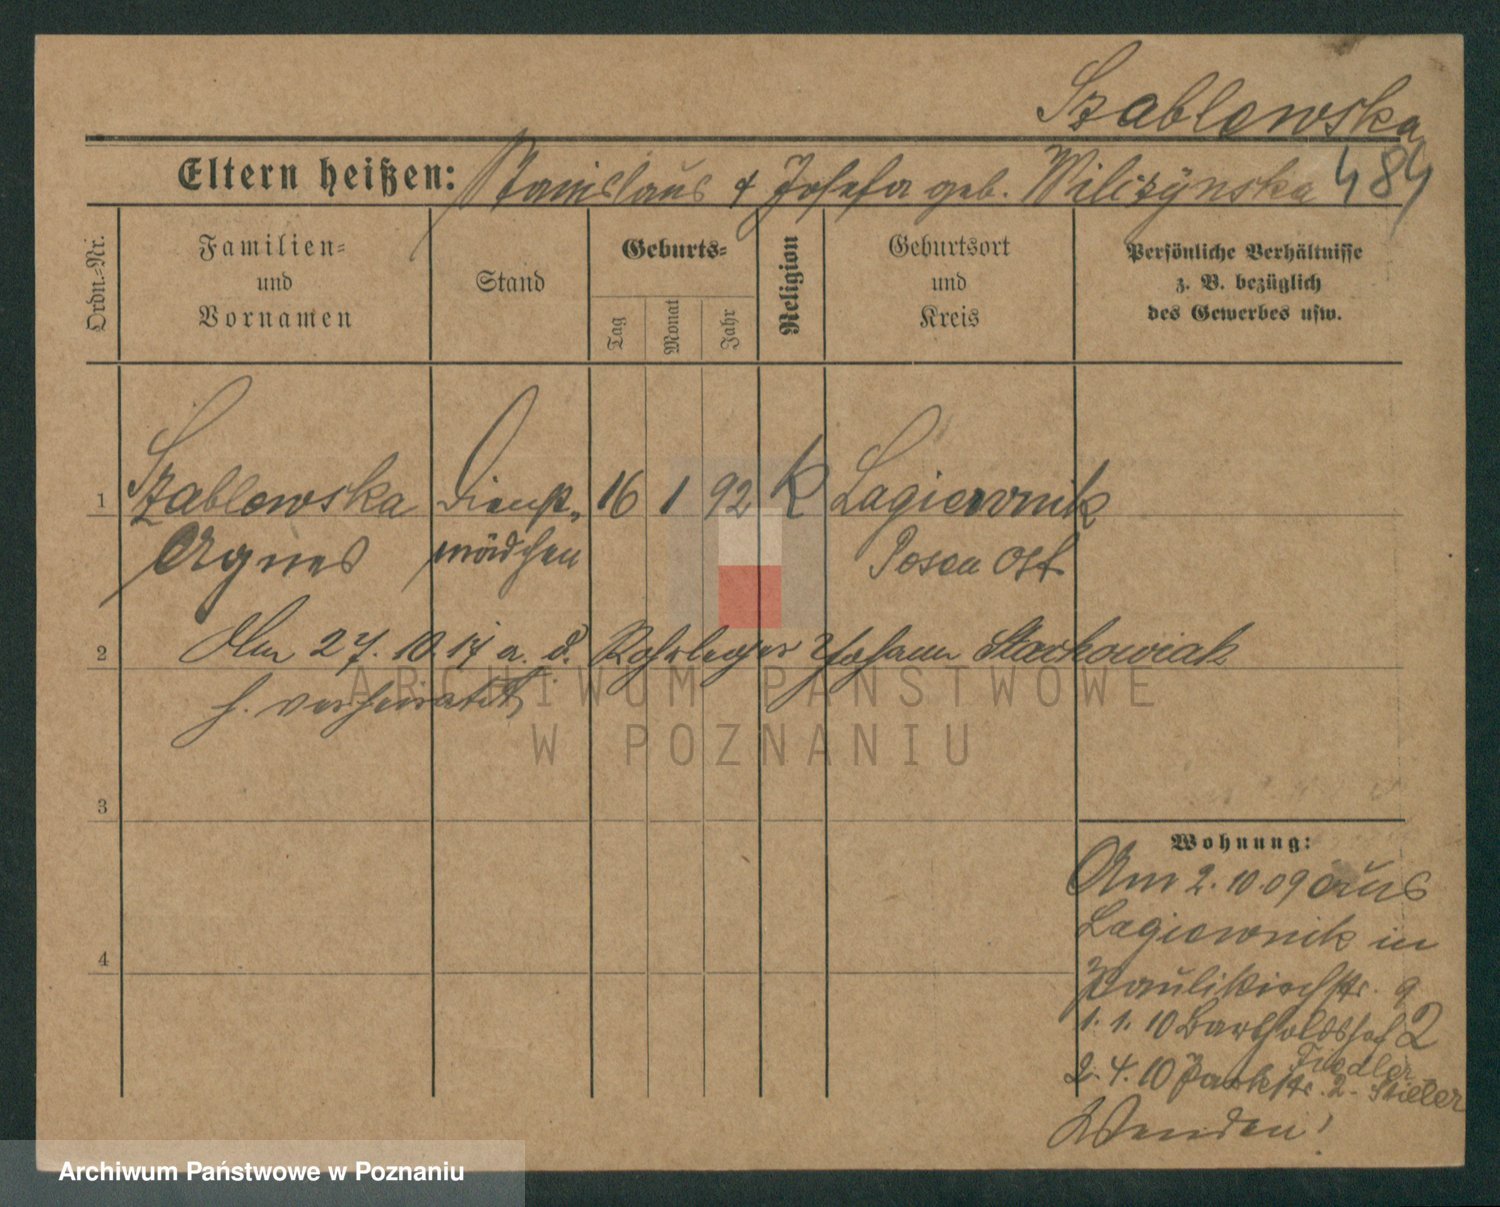 Szablewska
Eltern heißen: Stanislaus & Josefa geb. Wilczynska 484
Ordn.-Nr.
Familien=
und
Vornamen
Stand
Geburts=
Tag
Monat
Jahr
Religion
Geburtsort
und
Kreis
Persönliche Verhältnisse
z. B. bezüglich
des Gewerbes usw.
1 Szablewska Dienst- 16 1 92 K Lagiewnik
Agnes mädchen Posen Ost
2 Am 27.10.14 a. d. Rohrleger Johann Starkowiak
h. verheiratet
3
4
Wohnung:
Am 2.10.09 aus
Lagiewnik in
Paulikirchstr. 9
1.1.10 Bartholdshof 2
Fiedler
2.4.10 Parkstr. 2 - Stieler
Wenden!
ARCHIWUM PAŃSTWOWE
W POZNANIU
Archiwum Państwowe w Poznaniu